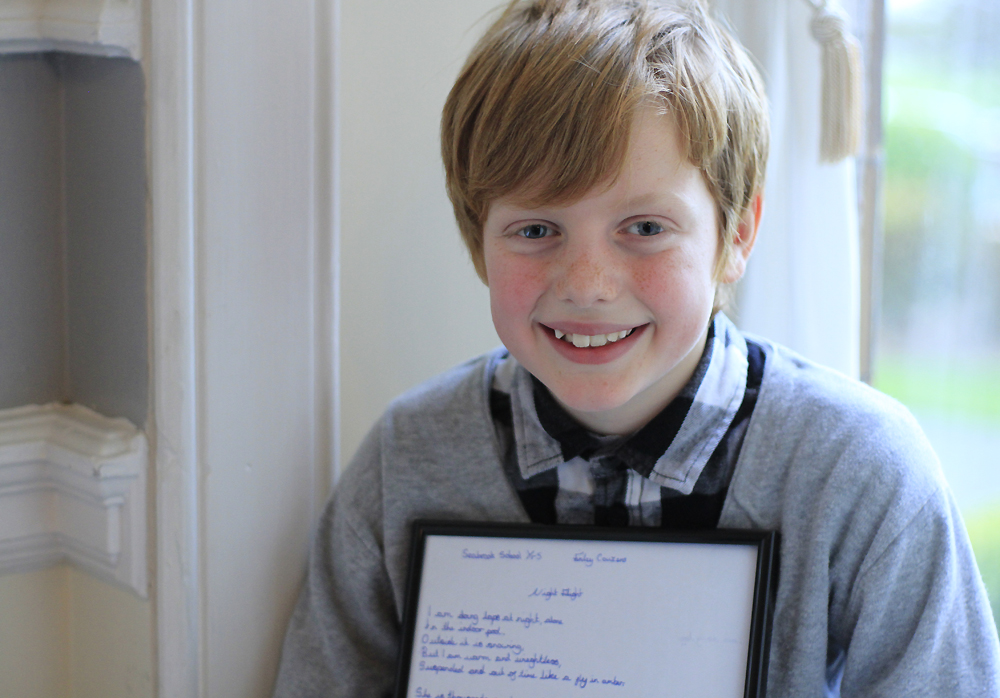 School
Night Flight
I am doing laps at night, alone
In the indoor pool.
Outside it is snowing,
But I am warm and weightless,
Suspended and out of time like a fly in amber.
She is